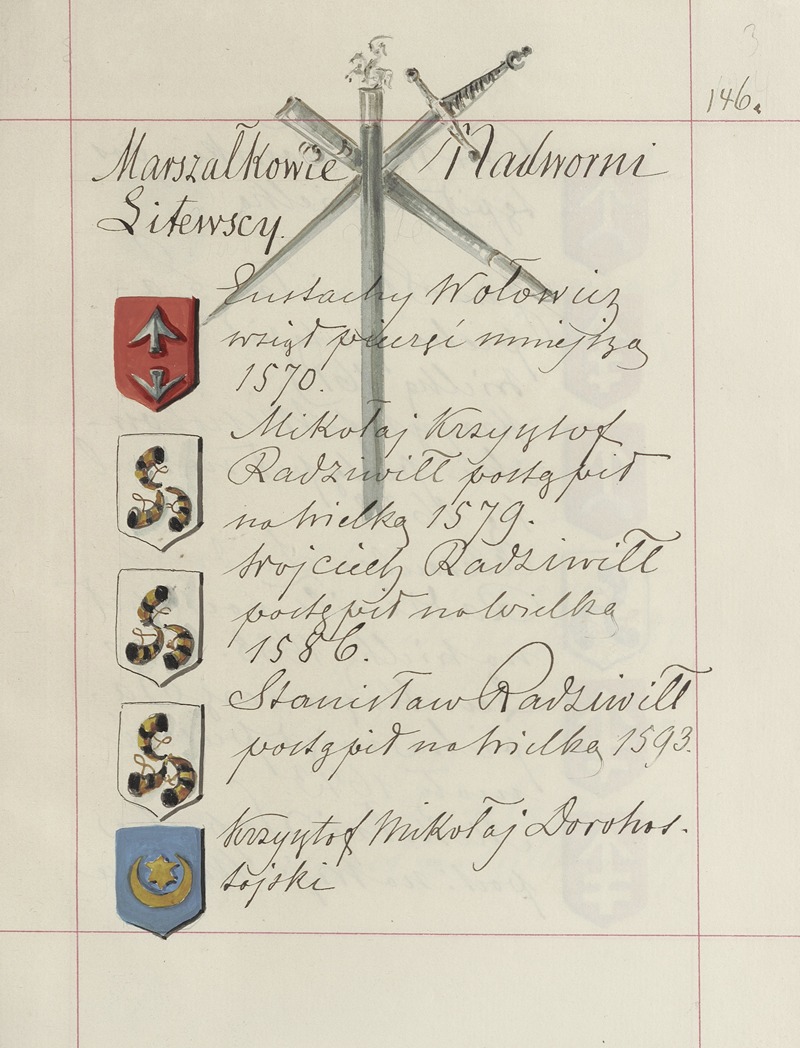 3
146.
Marszałkowie Nadworni
Litewscy.
Eustachy Wołowicz
wziął pieczęć mniejszą
1570.
Mikołaj Krzysztof
Radziwiłł postąpił
na wielką 1579.
Wojciech Radziwiłł
postąpił na wielką
1586.
Stanisław Radziwiłł
postąpił na wielką 1593.
Krzysztof Mikołaj Dorohos-
tajski